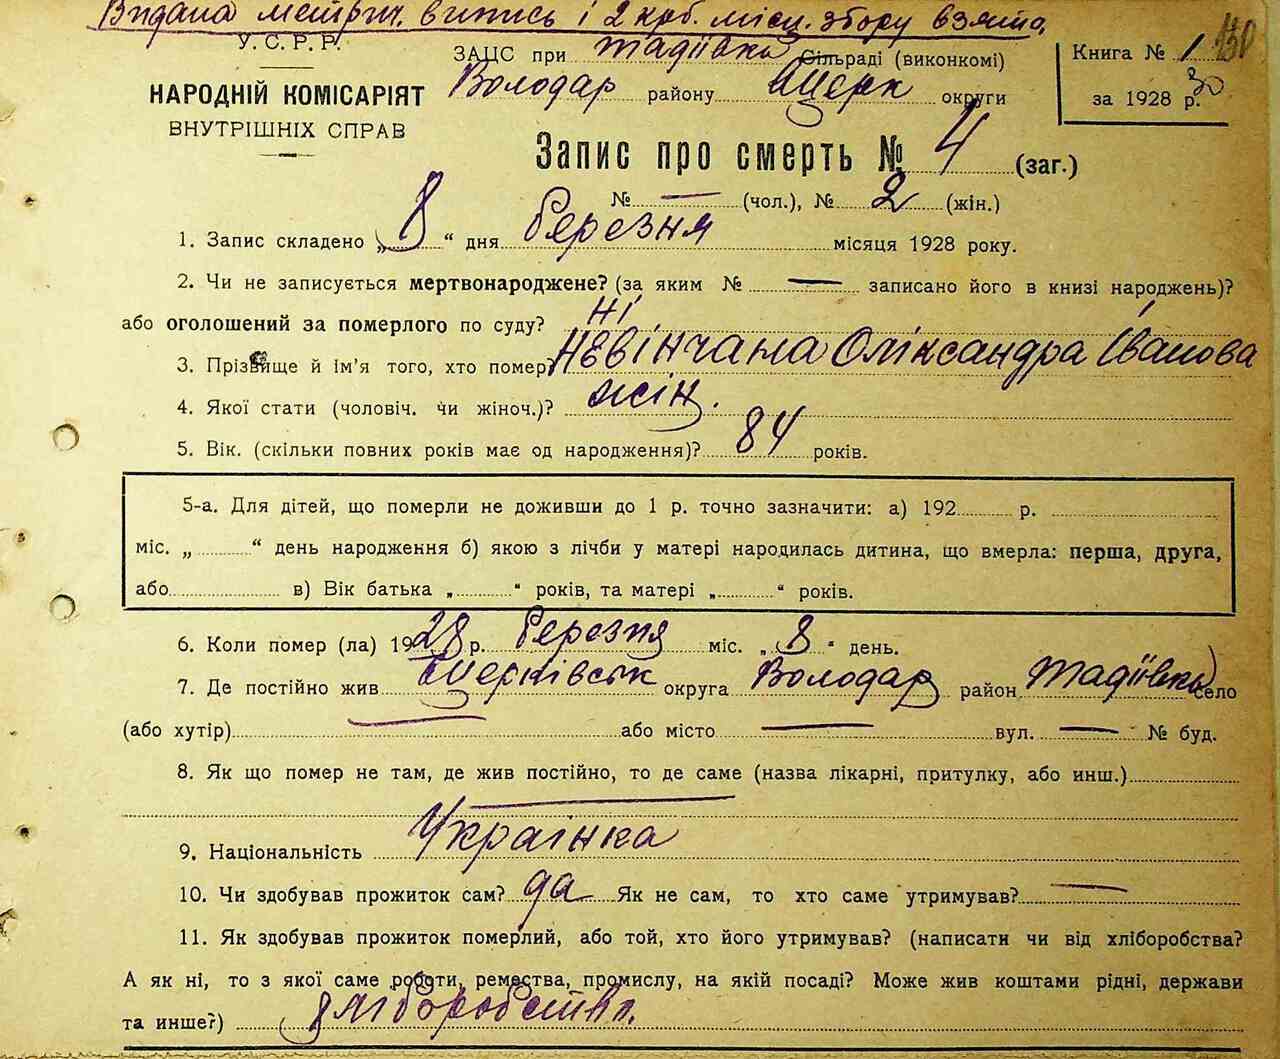 Видана метрич. випись і 2 крб. місц. збору взято.
У.С.Р.Р.
НАРОДНІЙ КОМІСАРІЯТ
ВНУТРІШНІХ СПРАВ
ЗАЦС при Тадіївка Сільраді (виконкомі)
Володар району БЦерк округи
Книга № 1 130
за 1928 р. 30
Запис про смерть № 4 (заг.)
№ — (чол.), № 2 (жін.)
1. Запис складено „8“ дня березня місяця 1928 року.
2. Чи не записується мертвонароджене? (за яким № — записано його в книзі народжень)?
або оголошений за померлого по суду? Ні
3. Прізвище й ім'я того, хто помер? Невінчана Оліксандра Іванова
4. Якої статі (чоловіч. чи жіноч.)? жін.
5. Вік. (скільки повних років має од народження)? 84 років.
5-а. Для дітей, що померли не доживши до 1 р. точно зазначити: а) 192 р.
міс. „ “ день народження б) якою з лічби у матері народилась дитина, що вмерла: перша, друга,
або в) Вік батька „ “ років, та матері „ “ років.
6. Коли помер (ла) 1928 р. березня міс. „8“ день.
7. Де постійно жив БЦерківськ округа Володар район Тадіївка село
(або хутір) — або місто — вул. — № буд.
8. Як що помер не там, де жив постійно, то де саме (назва лікарні, притулку, або инш.)
—
9. Національність Українка
10. Чи здобував прожиток сам? да Як не сам, то хто саме утримував? —
11. Як здобував прожиток померлий, або той, хто його утримував? (написати чи від хліборобства?
А як ні, то з якої саме роботи, ремества, промислу, на якій посаді? Може жив коштами рідні, держави
та инше?)